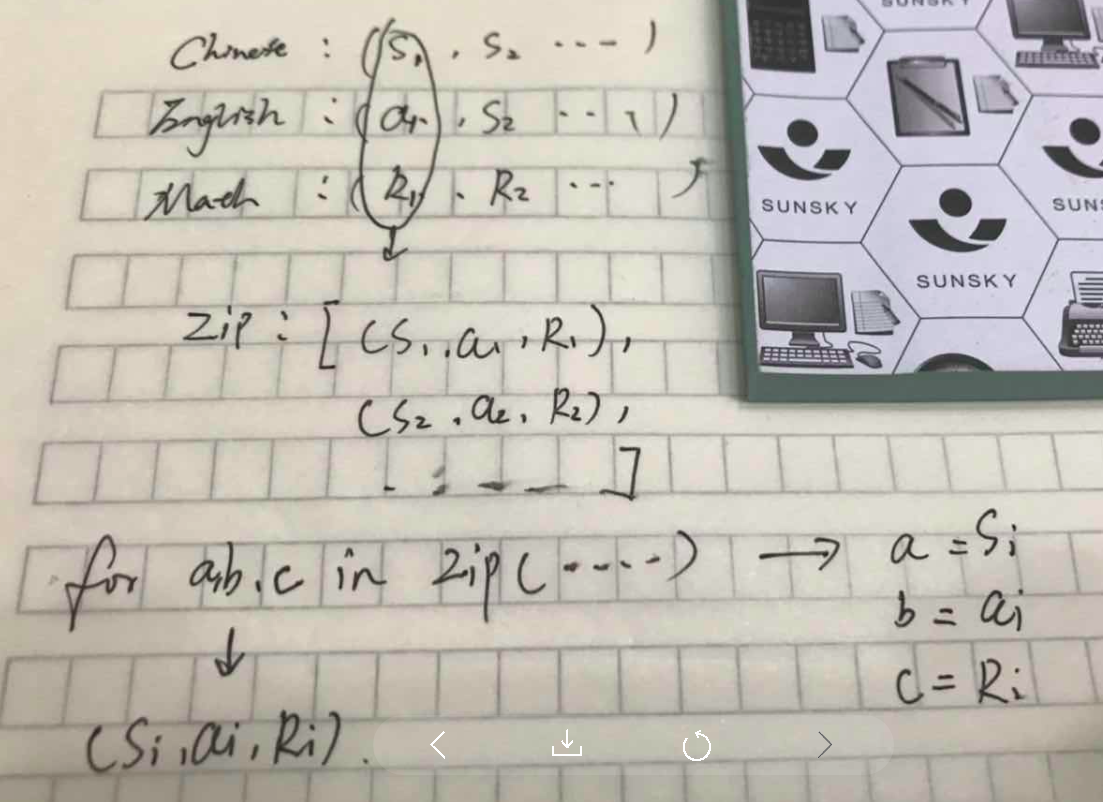 Chinese : (S1, S2 ....)
English : (a1, S2 ...)
Math : (R1, R2 ... )
Zip : [ (S1, a1, R1),
(S2, a2, R2),
. : — — ]
for a,b,c in Zip(.....) → a = Si
b = ai
c = Ri
(Si, ai, Ri).
SUNSKY
SUNSKY
SUN
SUNSKY